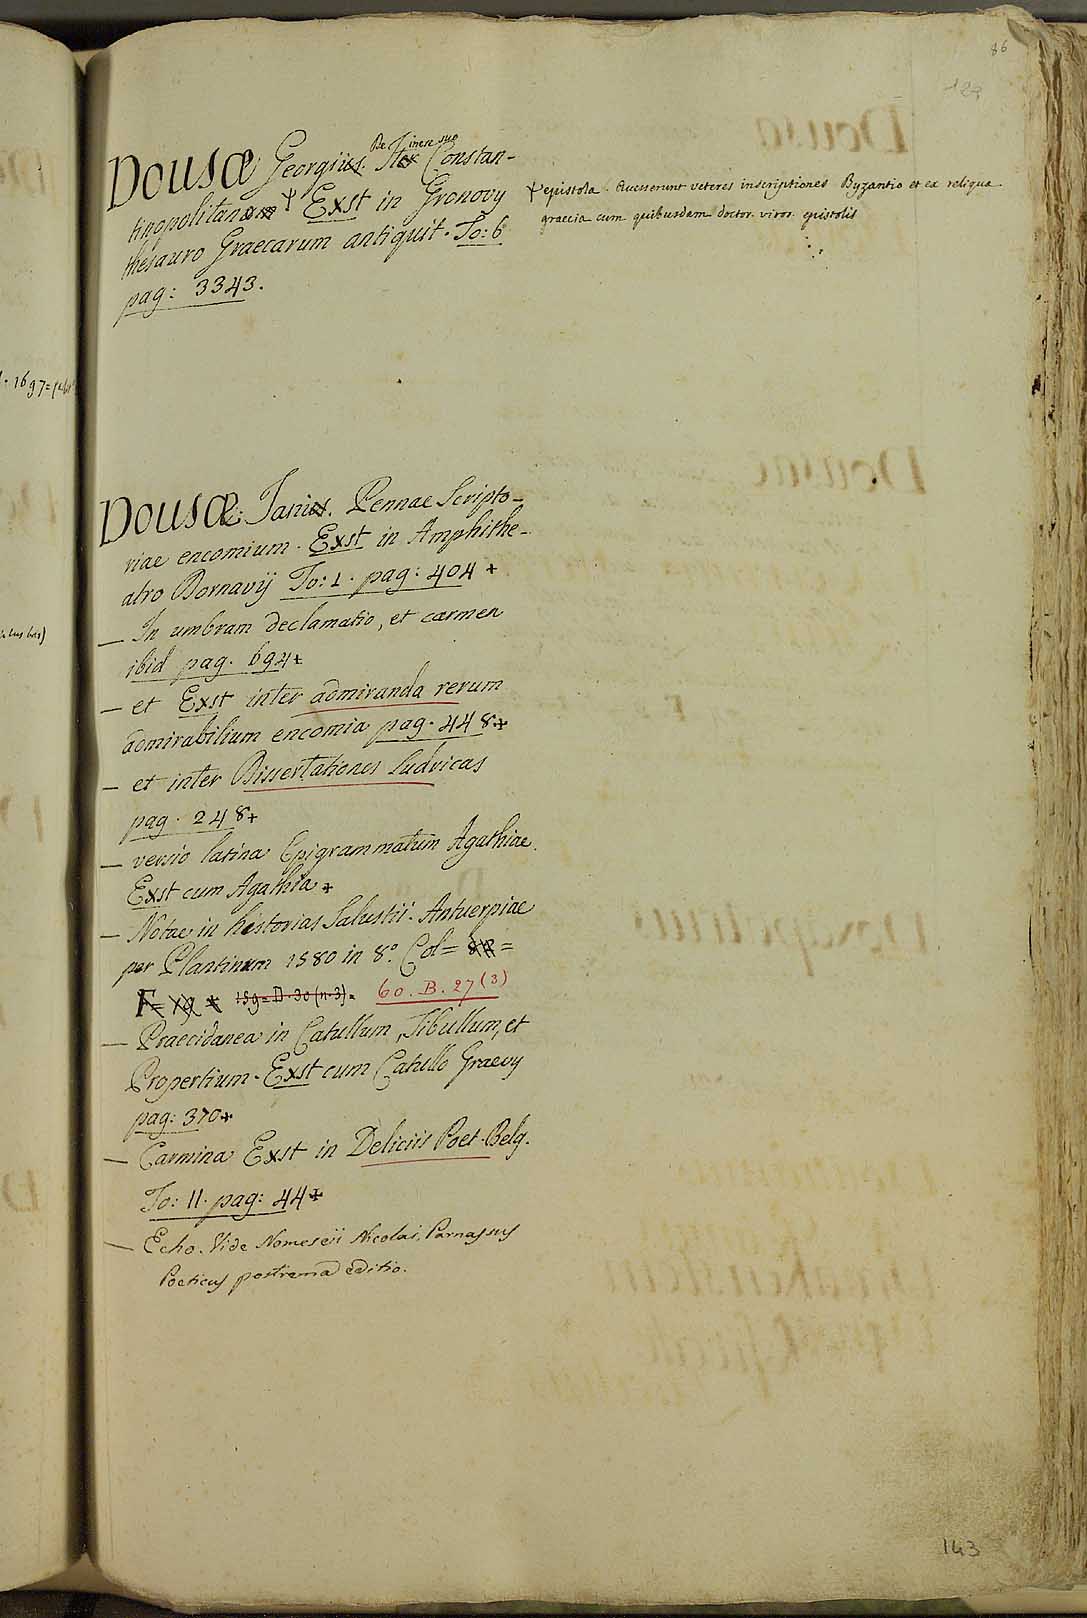 86
129
De Itinere suo
DOUSÆ Georgii. Iter Constan-
tinopolitano Ψ Exst in Gronovij
thesauro Graecarum antiquit. To: 6
pag: 3343.
Ψ epistola. Accesserunt veteres inscriptiones Byzantio et ex reliqua
graecia cum quibusdam doctor. viror. epistolis
1697=
DOUSÆ Jani. Pennae Scripto-
riae encomium. Exst in Amphithe-
atro Dornavij To: 1. pag: 404 +
— In umbram declamatio, et carmen
ibid pag. 694+
— et Exst inter admiranda rerum
admirabilium encomia pag. 448+
— et inter Dissertationes ludricas
pag. 248+
— versio latina Epigrammatum Agathiae.
Exst cum Agathia +
— Notae in historias Salustii. Antuerpiae
per Plantinum 1580 in 8.° Col=
159=D.30(n.3). 60. B. 27 (3)
— Praecidanea in Catullum, Tibullum, et
Propertium. Exst cum Catullo Graevij
pag: 370+
— Carmina Exst in Deliciis Poet. Belg.
To: II. pag: 44+
— Echo. Vide Nomeseii Nicolai. Parnassus
Poeticus postrema editio.
143